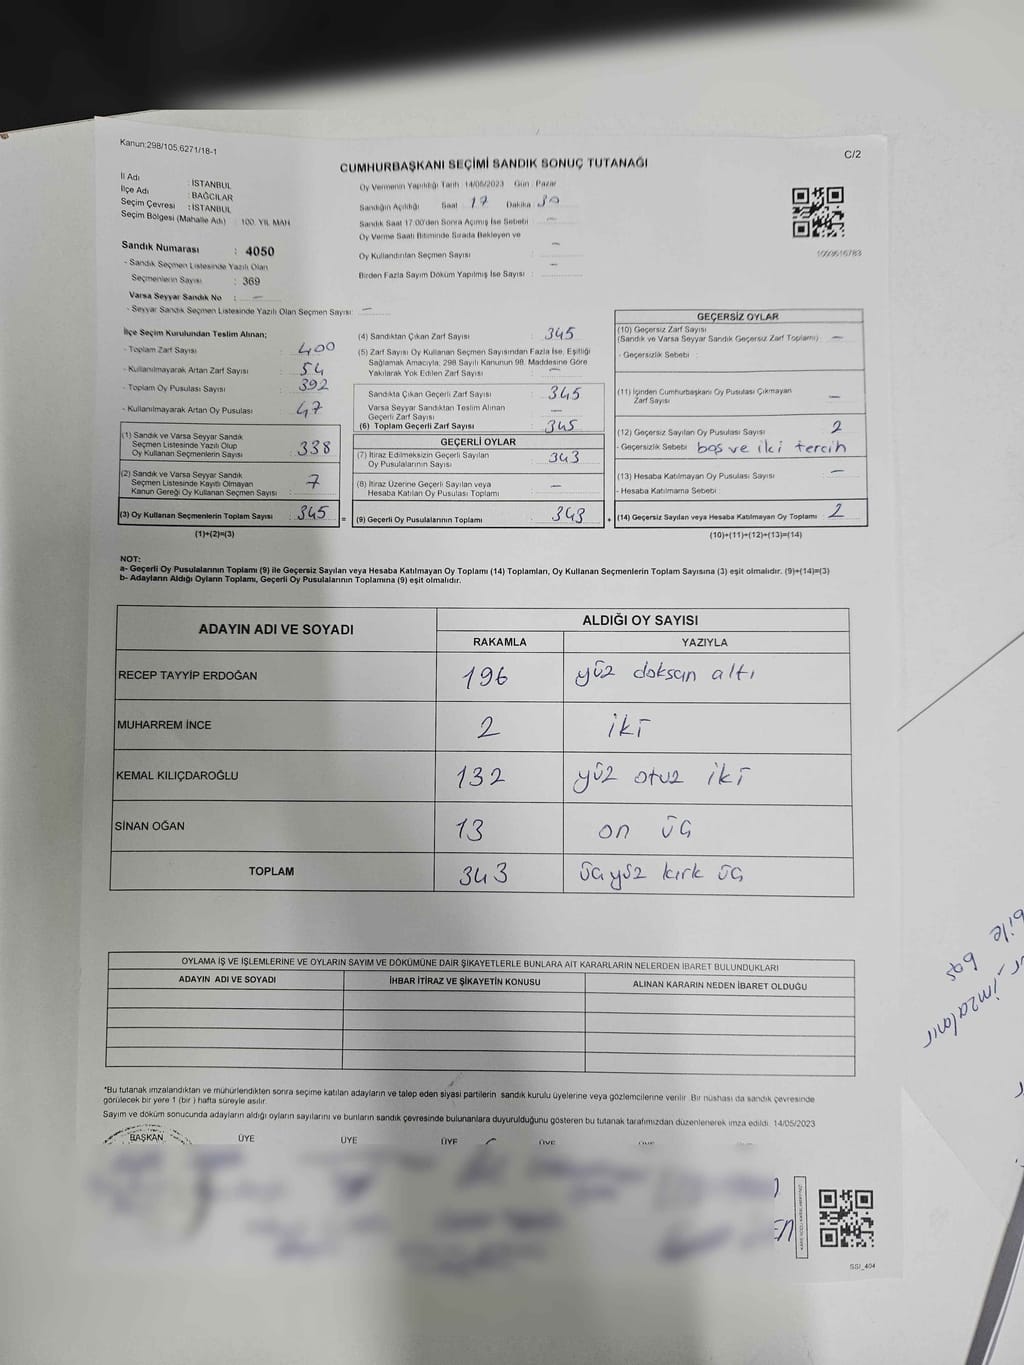 Kanun:298/105.6271/18-1
C/2
CUMHURBAŞKANI SEÇİMİ SANDIK SONUÇ TUTANAĞI
İl Adı : İSTANBUL
İlçe Adı : BAĞCILAR
Seçim Çevresi : İSTANBUL
Seçim Bölgesi (Mahalle Adı) : 100. YIL MAH
Sandık Numarası : 4050
- Sandık Seçmen Listesinde Yazılı Olan
Seçmenlerin Sayısı : 369
Varsa Seyyar Sandık No : —
- Seyyar Sandık Seçmen Listesinde Yazılı Olan Seçmen Sayısı: —
Oy Vermenin Yapıldığı Tarih 14/05/2023 Gün : Pazar
Sandığın Açıldığı Saat 17 Dakika 30
Sandık Saat 17.00'den Sonra Açımış İse Sebebi : —
Oy Verme Saati Bitiminde Sırada Bekleyen ve
Oy Kullandırılan Seçmen Sayısı : —
Birden Fazla Sayım Döküm Yapılmış İse Sayısı : —
1009616783
İlçe Seçim Kurulundan Teslim Alınan;
- Toplam Zarf Sayısı : 400
- Kullanılmayarak Artan Zarf Sayısı : 54
- Toplam Oy Pusulası Sayısı : 392
- Kullanılmayarak Artan Oy Pusulası : 47
(1) Sandık ve Varsa Seyyar Sandık
Seçmen Listesinde Yazılı Olup
Oy Kullanan Seçmenlerin Sayısı : 338
(2) Sandık ve Varsa Seyyar Sandık
Seçmen Listesinde Kayıtlı Olmayan
Kanun Gereği Oy Kullanan Seçmen Sayısı : 7
(3) Oy Kullanan Seçmenlerin Toplam Sayısı : 345 =
(1)+(2)=(3)
(4) Sandıktan Çıkan Zarf Sayısı : 345
(5) Zarf Sayısı Oy Kullanan Seçmen Sayısından Fazla İse, Eşitliği
Sağlamak Amacıyla, 298 Sayılı Kanunun 98. Maddesine Göre
Yakılarak Yok Edilen Zarf Sayısı : —
Sandıkta Çıkan Geçerli Zarf Sayısı : 345
Varsa Seyyar Sandıktan Teslim Alınan
Geçerli Zarf Sayısı : —
(6) Toplam Geçerli Zarf Sayısı : 345
GEÇERLİ OYLAR
(7) İtiraz Edilmeksizin Geçerli Sayılan
Oy Pusulalarının Sayısı : 343
(8) İtiraz Üzerine Geçerli Sayılan veya
Hesaba Katılan Oy Pusulası Toplamı : —
(9) Geçerli Oy Pusulalarının Toplamı : 343 +
GEÇERSİZ OYLAR
(10) Geçersiz Zarf Sayısı
(Sandık ve Varsa Seyyar Sandık Geçersiz Zarf Toplamı) : —
- Geçersizlik Sebebi :
(11) İçinden Cumhurbaşkanı Oy Pusulası Çıkmayan
Zarf Sayısı : —
(12) Geçersiz Sayılan Oy Pusulası Sayısı : 2
- Geçersizlik Sebebi : boş ve iki tercih
(13) Hesaba Katılmayan Oy Pusulası Sayısı : —
- Hesaba Katılmama Sebebi :
(14) Geçersiz Sayılan veya Hesaba Katılmayan Oy Toplamı : 2
(10)+(11)+(12)+(13)=(14)
NOT:
a- Geçerli Oy Pusulalarının Toplamı (9) ile Geçersiz Sayılan veya Hesaba Katılmayan Oy Toplamı (14) Toplamları, Oy Kullanan Seçmenlerin Toplam Sayısına (3) eşit olmalıdır. (9)+(14)=(3)
b- Adayların Aldığı Oyların Toplamı, Geçerli Oy Pusulalarının Toplamına (9) eşit olmalıdır.
ADAYIN ADI VE SOYADI
ALDIĞI OY SAYISI
RAKAMLA YAZIYLA
RECEP TAYYİP ERDOĞAN 196 yüz doksan altı
MUHARREM İNCE 2 iki
KEMAL KILIÇDAROĞLU 132 yüz otuz iki
SİNAN OĞAN 13 on üç
TOPLAM 343 üçyüz kırk üç
OYLAMA İŞ VE İŞLEMLERİNE VE OYLARIN SAYIM VE DÖKÜMÜNE DAİR ŞİKAYETLERLE BUNLARA AİT KARARLARIN NELERDEN İBARET BULUNDUKLARI
ADAYIN ADI VE SOYADI İHBAR İTİRAZ VE ŞİKAYETİN KONUSU ALINAN KARARIN NEDEN İBARET OLDUĞU
*Bu tutanak imzalandıktan ve mühürlendikten sonra seçime katılan adayların ve talep eden siyasi partilerin sandık kurulu üyelerine veya gözlemcilerine verilir. Bir nüshası da sandık çevresinde
görülecek bir yere 1 (bir ) hafta süreyle asılır.
Sayım ve döküm sonucunda adayların aldığı oyların sayılarını ve bunların sandık çevresinde bulunanlara duyurulduğunu gösteren bu tutanak tarafımızdan düzenlenerek imza edildi. 14/05/2023
BAŞKAN ÜYE ÜYE ÜYE ÜYE
SSI_404
bile boş
imzalanır